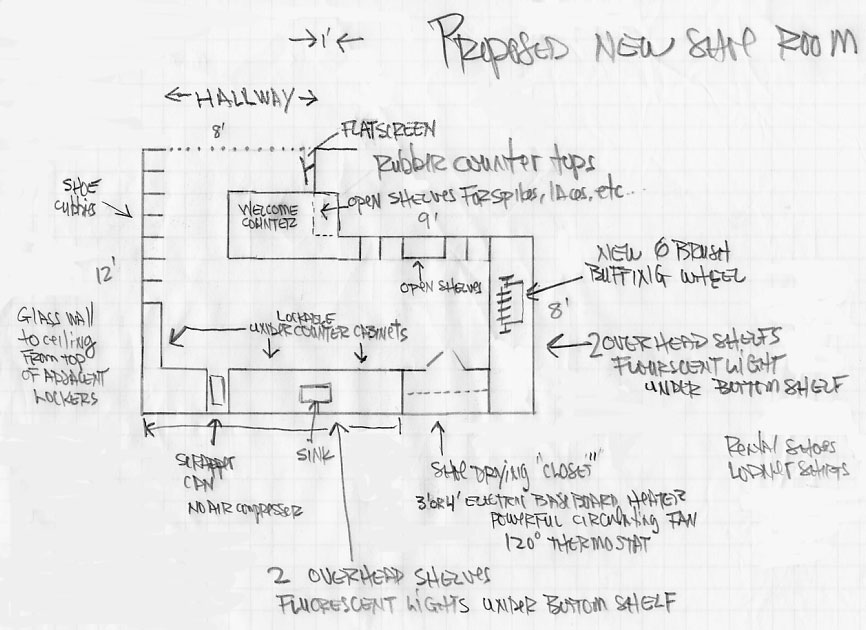 PROPOSED NEW SHOE ROOM
1'
HALLWAY
8'
FLATSCREEN
RUBBER COUNTER TOPS
SHOE
CUBBIES
WELCOME
COUNTER
OPEN SHELVES FOR SPIKES, LACES, ETC...
9'
OPEN SHELVES
NEW 6 BRUSH
BUFFING WHEEL
12'
8'
GLASS WALL
TO CEILING
FROM TOP
OF ADJACENT
LOCKERS
LOCKABLE
UNDER COUNTER CABINETS
2 OVERHEAD SHELFS
FLOURSCENT LIGHT
UNDER BOTTOM SHELF
SCRAPPER
CAN
NO AIR COMPRESSER
SINK
SHOE DRYING "CLOSET"
3' OR 4' ELECTRIC BASEBOARD HEATER
POWERFUL CIRCULATING FAN
120° THERMOSTAT
RENTAL SHOES
2 OVERHEAD SHELVES
FLUORESCENT LIGHTS UNDER BOTTOM SHELF